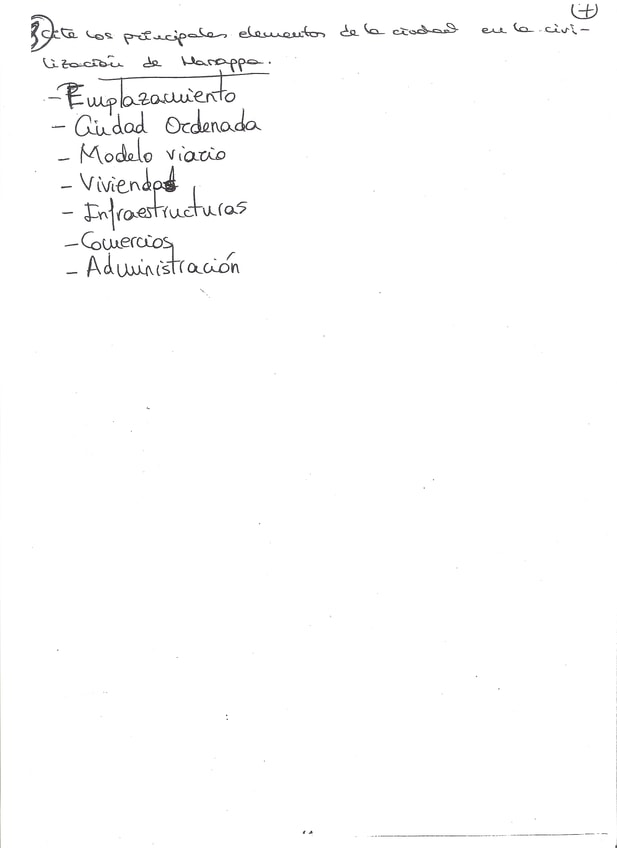 7
3) Cite los principales elementos de la ciudad en la civi-
lización de Harappa.
- Emplazamiento
- Ciudad Ordenada
- Modelo viario
- Viviendas
- Infraestructuras
- Comercios
- Administración